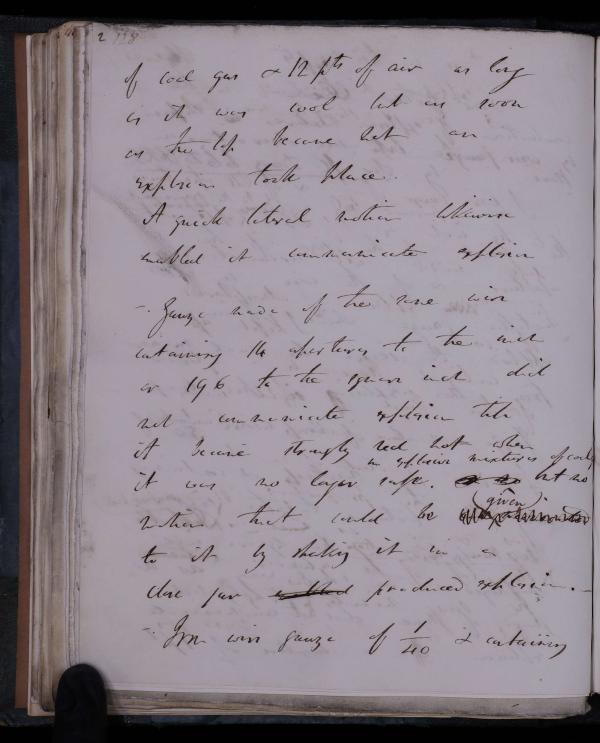 2 118
of coal gas & 12 pts of air as long
as it was cool but as soon
as the top became hot an
explosion took place.
A quick lateral motion likewise
enabled it communicate explosion
- Gauze made of the same wire
containing 14 apertures to the inch
or 196 to the square inch did
not communicate explosion till
it became strongly red hot when
in explosive mixtures of coal
it was no longer safe. but no
given
motion that could be
to it by shaking it in a
close jar enabled produced explosion. -
- Iron wire gauze of 1/40 & containing